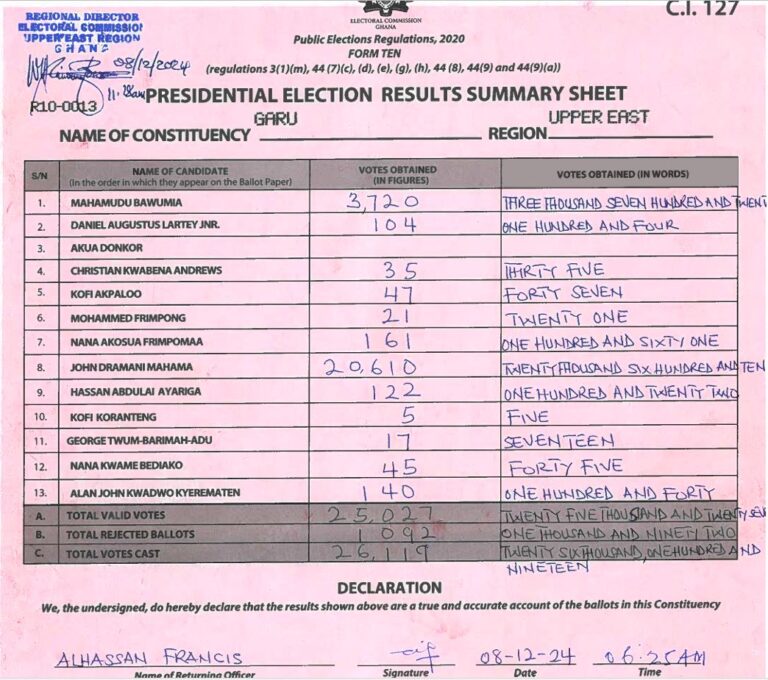 C.I. 127
REGIONAL DIRECTOR
ELECTORAL COMMISSION
UPPER EAST REGION
GHANA
08/12/2024
11:28am
R10-0013
ELECTORAL COMMISSION
GHANA
Public Elections Regulations, 2020
FORM TEN
(regulations 3(1)(m), 44 (7)(c), (d), (e), (g), (h), 44 (8), 44(9) and 44(9)(a))
PRESIDENTIAL ELECTION RESULTS SUMMARY SHEET
NAME OF CONSTITUENCY GARU REGION UPPER EAST
S/N NAME OF CANDIDATE (In the order in which they appear on the Ballot Paper) VOTES OBTAINED (IN FIGURES) VOTES OBTAINED (IN WORDS)
1. MAHAMUDU BAWUMIA 3,720 THREE THOUSAND SEVEN HUNDRED AND TWENT
2. DANIEL AUGUSTUS LARTEY JNR. 104 ONE HUNDRED AND FOUR
3. AKUA DONKOR
4. CHRISTIAN KWABENA ANDREWS 35 THIRTY FIVE
5. KOFI AKPALOO 47 FORTY SEVEN
6. MOHAMMED FRIMPONG 21 TWENTY ONE
7. NANA AKOSUA FRIMPOMAA 161 ONE HUNDRED AND SIXTY ONE
8. JOHN DRAMANI MAHAMA 20,610 TWENTY THOUSAND SIX HUNDRED AND TEN
9. HASSAN ABDULAI AYARIGA 122 ONE HUNDRED AND TWENTY TWO
10. KOFI KORANTENG 5 FIVE
11. GEORGE TWUM-BARIMAH-ADU 17 SEVENTEEN
12. NANA KWAME BEDIAKO 45 FORTY FIVE
13. ALAN JOHN KWADWO KYEREMATEN 140 ONE HUNDRED AND FORTY
A. TOTAL VALID VOTES 25,027 TWENTY FIVE THOUSAND AND TWENTY SEVE
B. TOTAL REJECTED BALLOTS 1,092 ONE THOUSAND AND NINETY TWO
C. TOTAL VOTES CAST 26,119 TWENTY SIX THOUSAND, ONE HUNDRED AND
NINETEEN
DECLARATION
We, the undersigned, do hereby declare that the results shown above are a true and accurate account of the ballots in this Constituency
ALHASSAN FRANCIS 08-12-24 06:25AM
Name of Returning Officer Signature Date Time